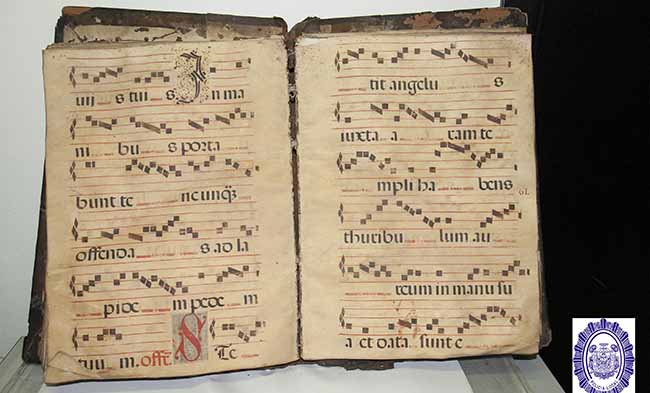 uij s tui s In ma
ni bu s porta
bunt te ncunq3
offenda s ad la
pide m pede m
tuu m. offe. S Te
tit angelu s
iuxta a ram te
mpli ha bens
61.
thuribu lum au
reum in manu su
a et data sunt e